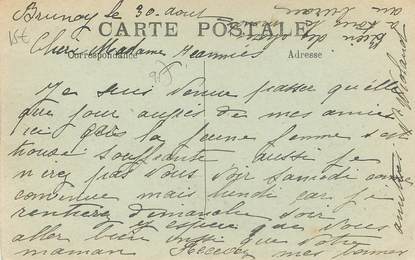 Brunoy le 30 aout
CARTE POSTALE
Chère Madame Jeannies
Correspondance
Adresse
Je suis venue passer quelle
que jour auprès de mes amies
ici la jeune femme s'est
trouvé souffrante aussi je
n'irez pas vous voir samedi comme
convenue mais lundi car je
rentrerez dimanche soir
J'espère que vous
aller bien ainsi que votre
maman Recevez mes bonnes
amitiés